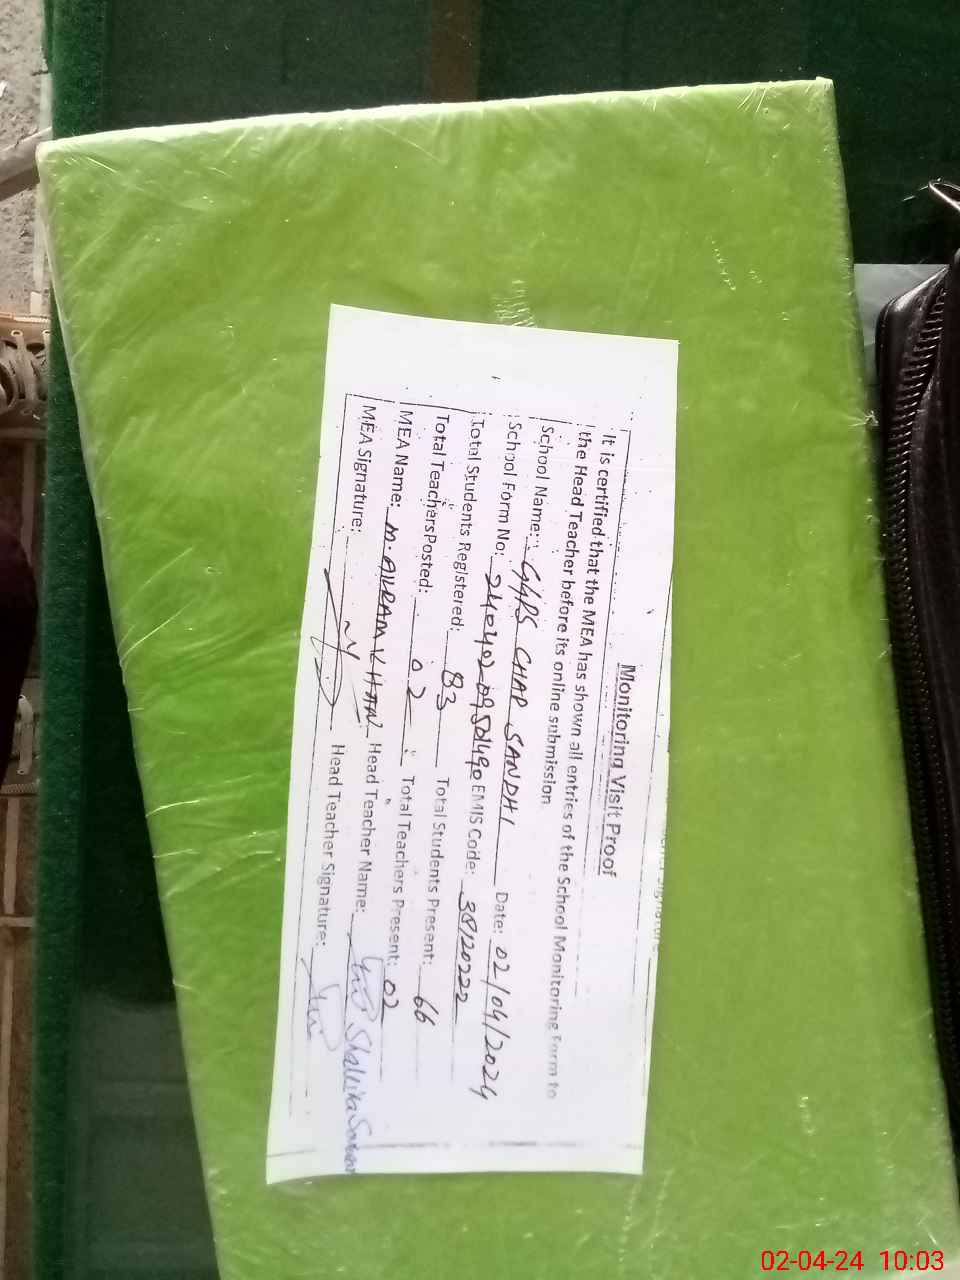 Monitoring Visit Proof
It is certified that the MEA has shown all entries of the School Monitoring Form to
the Head Teacher before its online submission
School Name: GGPS CHAP SANDHI Date: 02/04/2024
School Form No: EMIS Code: 38120222
Total Students Registered: 83 Total Students Present: 66
Total Teachers Posted: 02 Total Teachers Present: 02
MEA Name: M. AKRAM KHAN Head Teacher Name:
MEA Signature: Head Teacher Signature:
02-04-24 10:03